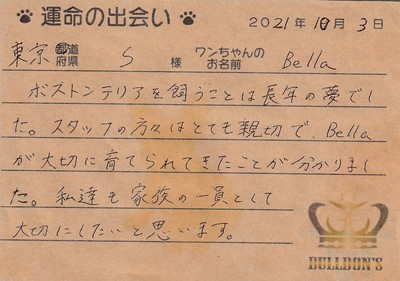 運命の出会い 2021年10月3日
東京 都道府県 S 様 ワンちゃんのお名前 Bella
ボストンテリアを飼うことは長年の夢でし
た。スタッフの方々はとても親切で、Bella
が大切に育てられてきたことが分かりまし
た。私達も家族の一員として
大切にしたいと思います。
BULLDON'S